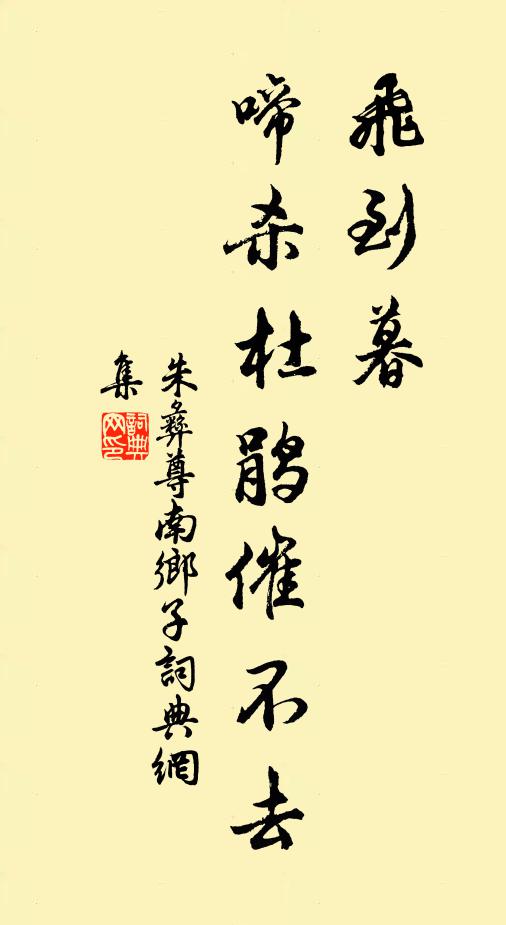 飛到暮
啼杀杜鹃催不去
朱彝尊南鄉子詞典網
集
詞典
网印